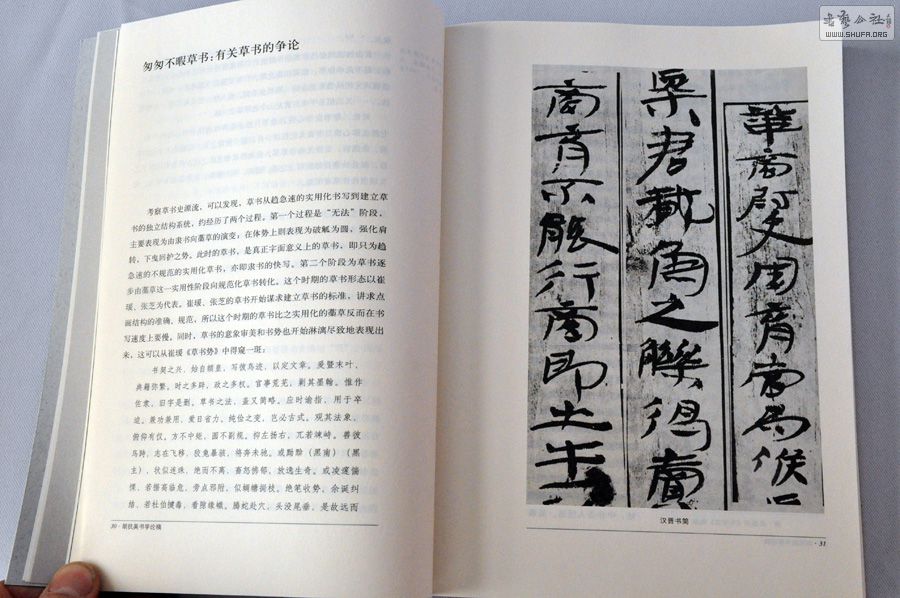 匆匆不暇草书:有关草书的争论
考察草书史源流,可以发现,草书从趋急速的实用化书写到建立草
书的独立结构系统,约经历了两个过程。第一个过程是“无法”阶段,
主要表现为由隶书向藁草的演变,在体势上则表现为破觚为圆,强化肩
转、下曳回护之势。此时的草书,是真正字面意义上的草书,即只为趋
急速的不规范的实用化草书,亦即隶书的快写。第二个阶段为草书逐
步由藁草这一实用性阶段向规范化草书转化。这个时期的草书形态以崔
瑗、张芝为代表。崔瑗、张芝的草书开始谋求建立草书的标准,讲求点
画结构的准确、规范,所以这个时期的草书比之实用化的藁草反而在书
写速度上要慢。同时,草书的意象审美和书势也开始淋漓尽致地表现出
来,这可以从崔瑗《草书势》中得窥一斑:
书契之兴,始自颉皇,写彼鸟迹,以定文章。爰暨末叶,
典籍弥繁。时之多僻,政之多权。官事荒芜,剿其墨翰。惟作
佐隶,旧字是删。草书之法,盖又简略。应时谕指,用于卒
迫。兼功并用,爱日省力。纯俭之变,岂必古式。观其法象,
俯仰有仪。方不中矩,圆不副规。抑左扬右,兀若竦峙。兽跂
鸟跱,志在飞移,狡兔暴骇,将奔未驰。或黝黭(黑南)(黑
主),状似连珠,绝而不离,畜怒怫郁,放逸生奇。或凌邃惴
慄,若据高临危,旁点邪附,似蜩螗挶枝。绝笔收势,余诞纠
结,若杜伯揵毒,看隙缘巇。腾蛇赴穴,头没尾垂。是故远而
30 · 胡抗美书学论稿
汉晋书简
· 31
书艺公社
WWW.SHUFA.ORG